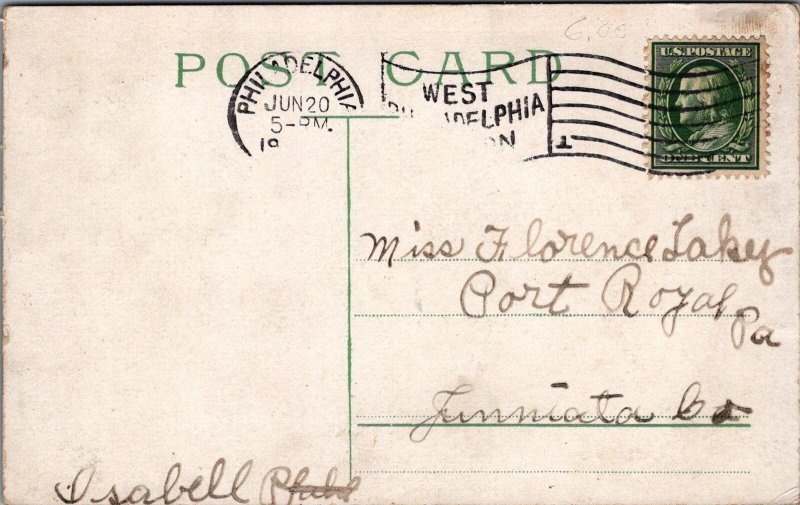 6.00
POST CARD
PHILADELPHIA
JUN 20
5-PM.
19
WEST
PHILADELPHIA
1
U.S. POSTAGE
ONE CENT
Miss Florence Lakey
Port Royal
Pa
Junniata Co
Isabell